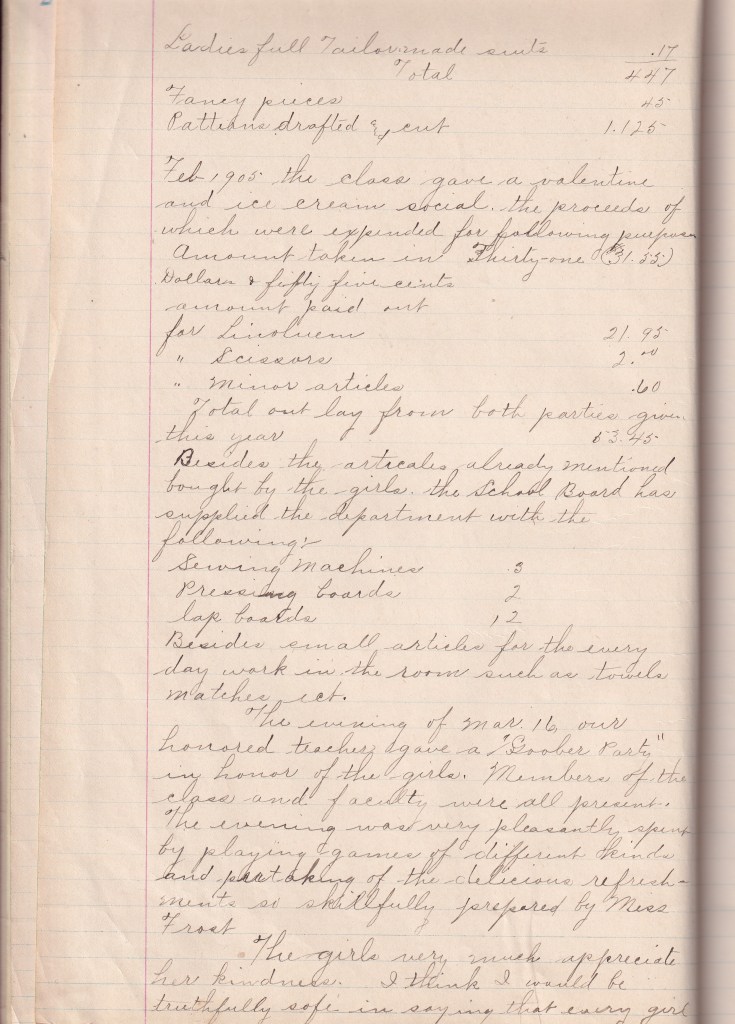 Ladies full Tailor made suits .17
Total 447
Fancy pieces 45
Pattrans drafted & cut 1.125
Feb, 1905 the class gave a valentine
and ice cream social. the proceeds of
which were expended for following purposes
Amount taken in Thirty-one ($31.55)
Dollars & fifty five cents
amount paid out
for Linoluem 21.95
" Scissors 2.00
" Minor articles .60
Total out lay from both parties given
this year 53.45
Besides the articales already mentioned
bought by the girls. the School Board has
supplied the department with the
following:-
Sewing Machines 3
Pressing boards 2
lap boards 12
Besides small articles for the every
day work in the room such as towels
matches ect.
The evening of Mar. 16, our
honored teacher gave a "Goober Party"
in honor of the girls. Members of the
class and faculty were all present.
The evening was very pleasantly spent
by playing games of different kinds
and partaking of the delicious refresh-
ments so skillfully prepared by Miss
Frost
The girls very much appreciate
her kindness. I think I would be
truthfully safe in saying that every girl